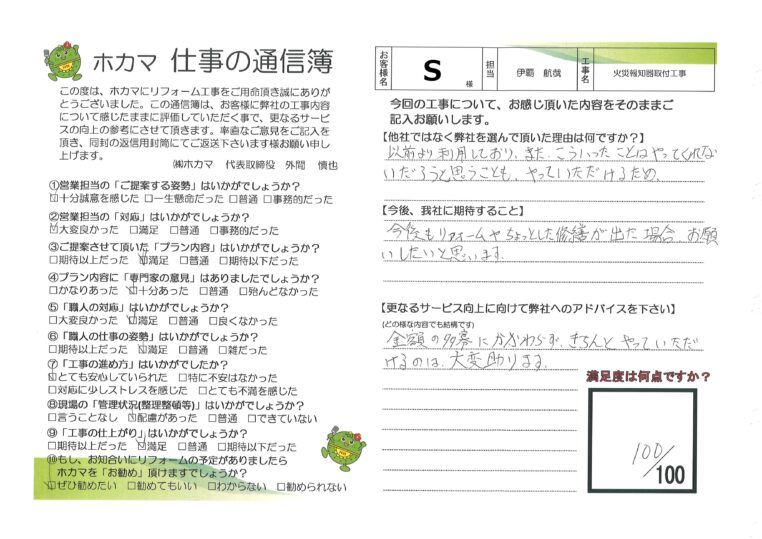 ホカマ 仕事の通信簿
この度は、ホカマにリフォーム工事をご用命頂き誠にありが
とうございました。この通信簿は、お客様に弊社の工事内容
について感じたままに評価していただく事で、更なるサービ
スの向上の参考にさせて頂きます。率直なご意見をご記入を
頂き、同封の返信用封筒にてご返送下さいます様お願い申し
上げます。
㈱ホカマ 代表取締役 外間 慎也
①営業担当の「ご提案する姿勢」はいかがでしょうか?
☑十分誠意を感じた □一生懸命だった □普通 □事務的だった
②営業担当の「対応」はいかがでしょうか?
☑大変良かった □満足 □普通 □事務的だった
③ご提案させて頂いた「プラン内容」はいかがでしょうか?
□期待以上だった ☑満足 □普通 □期待以下だった
④プラン内容に「専門家の意見」はありましたでしょうか?
□かなりあった ☑十分あった □普通 □殆んどなかった
⑤「職人の対応」はいかがでしょうか?
□大変良かった ☑満足 □普通 □良くなかった
⑥「職人の仕事の姿勢」はいかがでしょうか?
□期待以上だった ☑満足 □普通 □雑だった
⑦「工事の進め方」はいかがでしたか?
☑とても安心していられた □特に不安はなかった
□対応に少しストレスを感じた □とても不満を感じた
⑧現場の「管理状況(整理整頓等)」はいかがでしょうか?
□言うことなし ☑配慮があった □普通 □できていない
⑨「工事の仕上がり」はいかがでしょうか?
□期待以上だった ☑満足 □普通 □期待以下だった
⑩もし、お知合いにリフォームの予定がありましたら
ホカマを「お勧め」頂けますでしょうか?
☑ぜひ勧めたい □勧めてもいい □わからない □勧められない
お客様名 S 様 担当 伊覇 航哉 工事名 火災報知器取付工事
今回の工事について、お感じ頂いた内容をそのままご
記入お願いします。
【他社ではなく弊社を選んで頂いた理由は何ですか?】
以前より利用しており、また、こういったことはやってくれな
いだろうと思うことも、やっていただけるため。
【今後、我社に期待すること】
今後もリフォームやちょっとした修繕が出た場合、お願
いしたいと思います。
【更なるサービス向上に向けて弊社へのアドバイスを下さい】
(どの様な内容でも結構です)
金額の多寡にかかわらず、きちんとやっていただ
けるのは、大変助ります。
満足度は何点ですか?
100/100